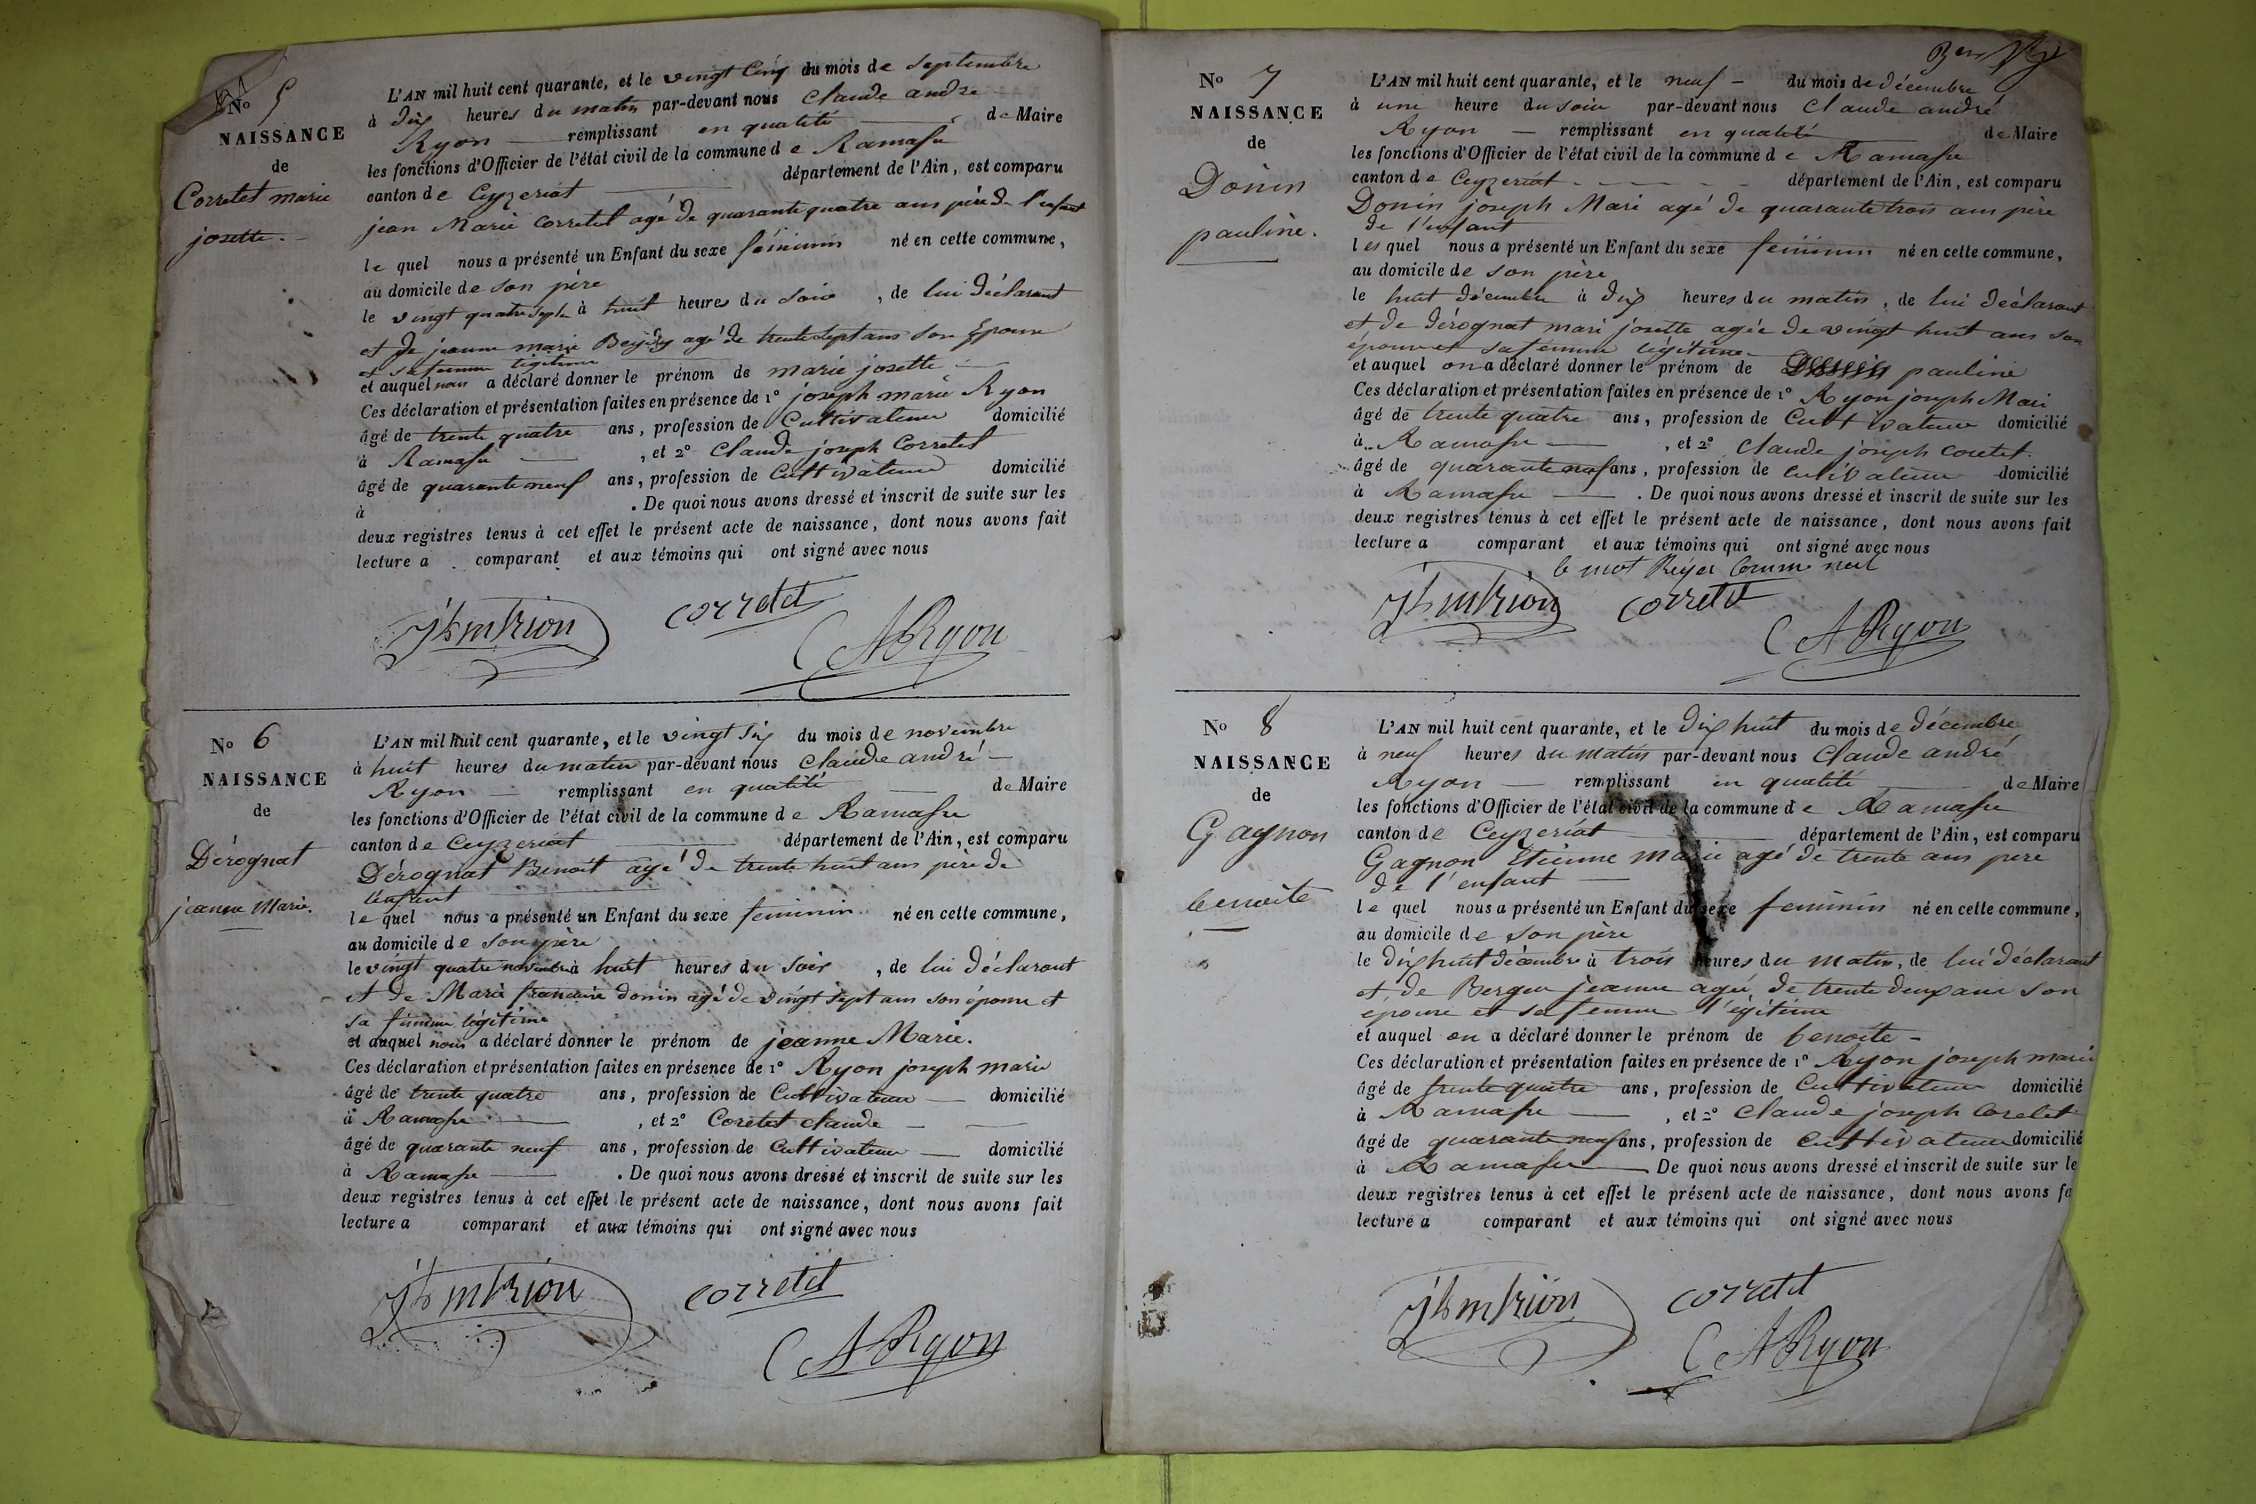 No 5
NAISSANCE
de
Corretet marie
josette.
L'AN mil huit cent quarante, et le vingt cinq du mois de septembre
à dix heures du matin par-devant nous Claude andré
Ryon remplissant en qualité de Maire
les fonctions d'Officier de l'état civil de la commune de Ramasse
canton de Ceyzeriat département de l'Ain, est comparu
jean Marie Corretet agé de quarante quatre ans père de l'enfant
le quel nous a présenté un Enfant du sexe féminin né en cette commune,
au domicile de son père
le vingt quatre septbre à huit heures du soir, de lui déclarant
et de jeanne marie agé de trente sept ans son Epouse
et sa femme légitime
et auquel nous a déclaré donner le prénom de marie josette
Ces déclaration et présentation faites en présence de 1° joseph marie Ryon
âgé de trente quatre ans, profession de Cultivateur domicilié
à Ramasse, et 2° Claude joseph Corretet
âgé de quarante neuf ans, profession de Cultivateur domicilié
à . De quoi nous avons dressé et inscrit de suite sur les
deux registres tenus à cet effet le présent acte de naissance, dont nous avons fait
lecture a comparant et aux témoins qui ont signé avec nous
Jh mRion corretet
C A Ryon
No 6
NAISSANCE
de
Dérognat
jeanne Marie.
L'AN mil huit cent quarante, et le vingt six du mois de novembre
à huit heures du matin par-devant nous Claude andré
Ryon remplissant en qualité de Maire
les fonctions d'Officier de l'état civil de la commune de Ramasse
canton de Ceyzeriat département de l'Ain, est comparu
Dérognat Benoit agé de trente huit ans père de
l'enfant
le quel nous a présenté un Enfant du sexe feminin né en cette commune,
au domicile de son père
le vingt quatre novembre à huit heures du soir, de lui déclarant
et de Marie francoise donin agé de vingt sept ans son épouse et
sa femme légitime
et auquel nous a déclaré donner le prénom de jeanne Marie.
Ces déclaration et présentation faites en présence de 1° Ryon joseph marie
âgé de trente quatre ans, profession de Cultivateur domicilié
à Ramasse, et 2° Coretet claude
âgé de quarante neuf ans, profession de Cultivateur domicilié
à Ramasse. De quoi nous avons dressé et inscrit de suite sur les
deux registres tenus à cet effet le présent acte de naissance, dont nous avons fait
lecture a comparant et aux témoins qui ont signé avec nous
Jh mRion corretet
C A Ryon
No 7
NAISSANCE
de
Donin
pauline.
L'AN mil huit cent quarante, et le neuf du mois de décembre
à une heure du soir par-devant nous Claude andré
Ryon remplissant en qualité de Maire
les fonctions d'Officier de l'état civil de la commune de Ramasse
canton de Ceyzeriat département de l'Ain, est comparu
Donin joseph Marie agé de quarante trois ans père
de l'enfant
les quel nous a présenté un Enfant du sexe feminin né en cette commune,
au domicile de son père
le huit décembre à dix heures du matin, de lui déclarant
et de dérognat mari josette agée de vingt huit ans son
épouse et sa femme légitime
et auquel on a déclaré donner le prénom de pauline
Ces déclaration et présentation faites en présence de 1° Ryon joseph Mari
âgé de trente quatre ans, profession de Cultivateur domicilié
à Ramasse, et 2° Claude joseph Coretet.
âgé de quarante neuf ans, profession de Cultivateur domicilié
à Ramasse. De quoi nous avons dressé et inscrit de suite sur les
deux registres tenus à cet effet le présent acte de naissance, dont nous avons fait
lecture a comparant et aux témoins qui ont signé avec nous
le mot Reyer Comme nul
Jh mRion corretet
C A Ryon
No 8
NAISSANCE
de
Gagnon
benoite
L'AN mil huit cent quarante, et le dix huit du mois de décembre
à neuf heures du matin par-devant nous Claude andré
Ryon remplissant en qualité de Maire
les fonctions d'Officier de l'état civil de la commune de Ramasse
canton de Ceyzeriat département de l'Ain, est comparu
Gagnon Etienne Marie agé de trente ans père
de l'enfant
le quel nous a présenté un Enfant du sexe feminin né en cette commune,
au domicile de son père
le dix huit décembre à trois heures du matin, de lui déclarant
et de Berger jeanne agée de trente deux ans son
épouse et sa femme légitime
et auquel on a déclaré donner le prénom de benoite
Ces déclaration et présentation faites en présence de 1° Ryon joseph marie
âgé de trente quatre ans, profession de Cultivateur domicilié
à Ramasse, et 2° Claude joseph Coretet
âgé de quarante neuf ans, profession de Cultivateur domicilié
à Ramasse De quoi nous avons dressé et inscrit de suite sur le
deux registres tenus à cet effet le présent acte de naissance, dont nous avons fa
lecture a comparant et aux témoins qui ont signé avec nous
Jh mRion corretet
C A Ryon